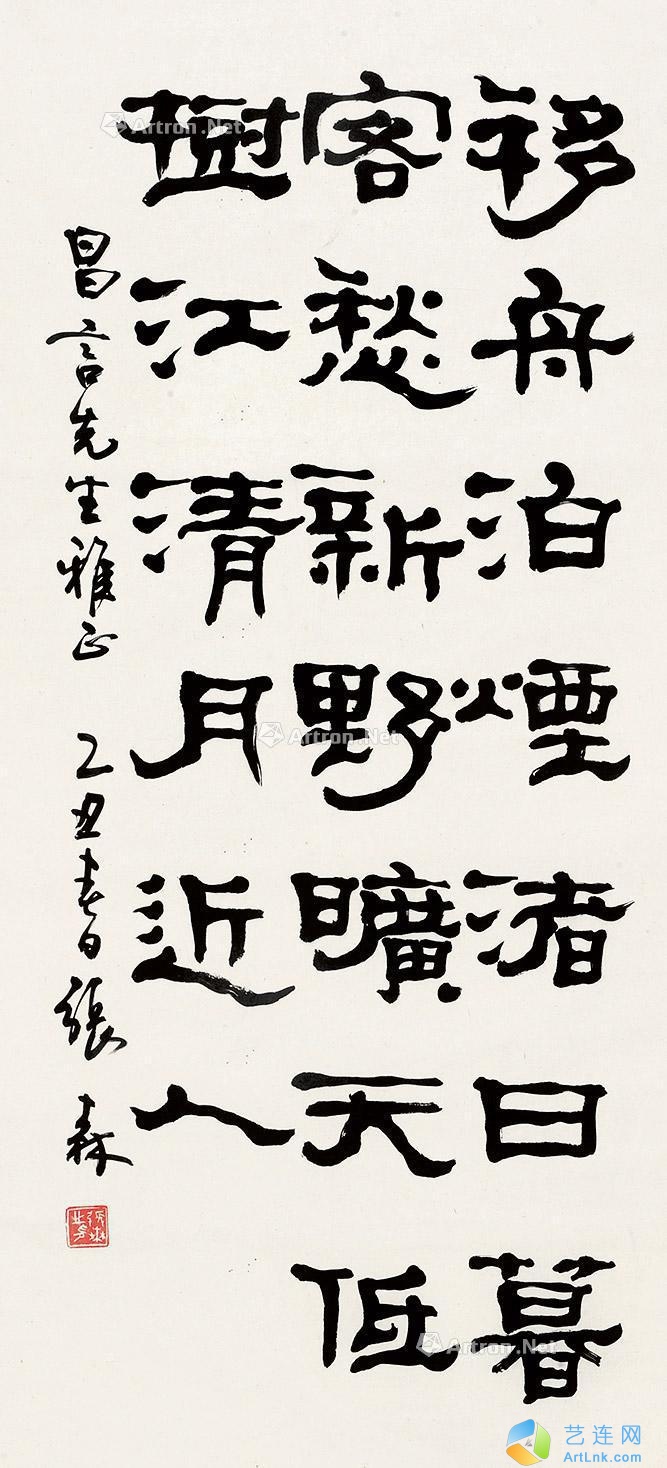 移舟泊煙渚日暮
客愁新野曠天低
樹江清月近人
昌言先生雅正 乙丑春日張森
Artron.Net
Artron.Net
Artron.Net
Artron.Net
艺连网
ArtLnk.com